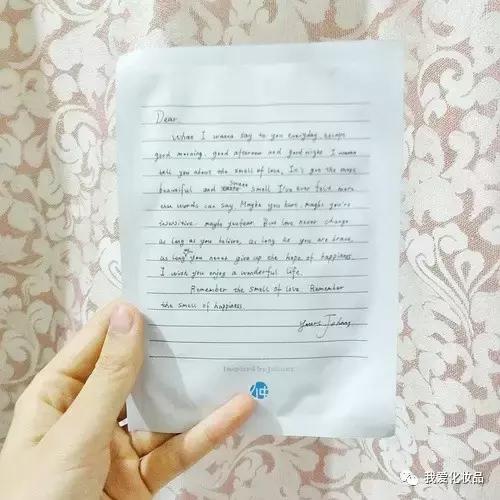 Dear,
What I wanna say to you everyday except
good morning, good afternoon and good night I wanna
tell you about the smell of love. It's got the most
beautiful and sweet smell I've ever told more
than words can say. Maybe you hurt, maybe you're
insensitive, maybe you fear. But love never change
as long as you believe, as long as you are brave,
as long you never give up the hope of happiness.
I wish you enjoy a wonderful life.
Remember the smell of love. Remember
the smell of happiness.
yours Johnny
我爱化妆品